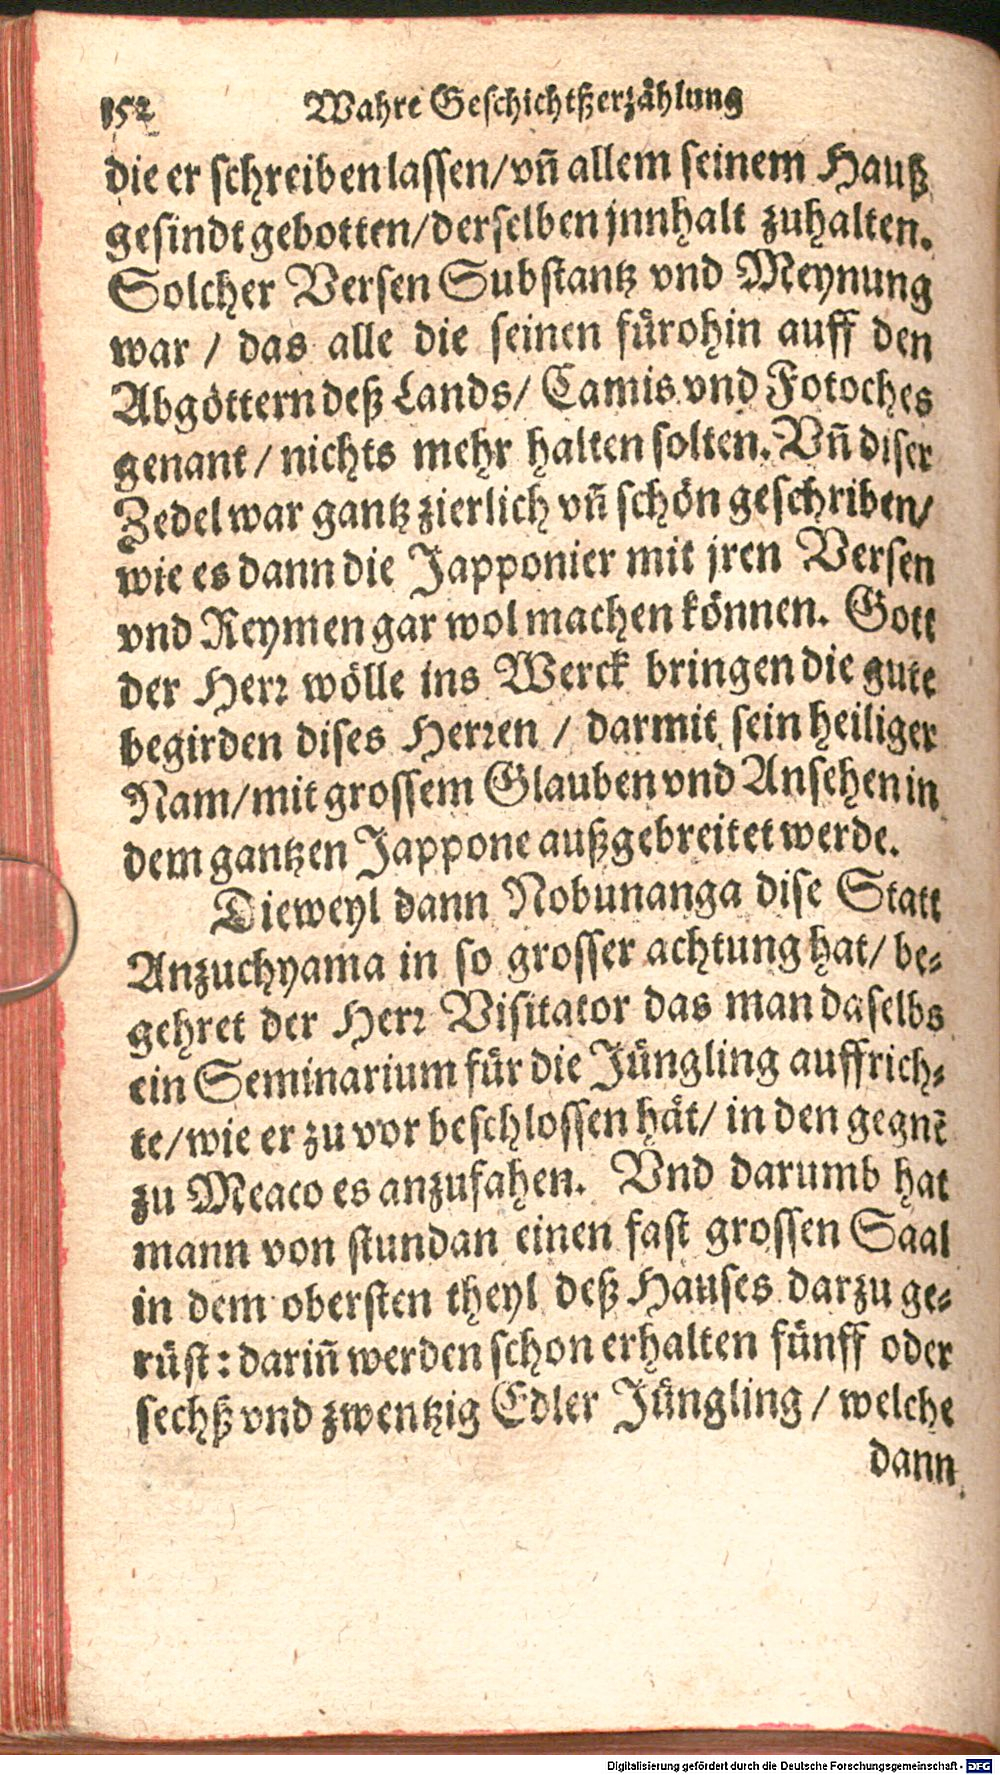 152 Wahre Geschichtßerzåhlung
die er schreiben lassen/vn̄ allem seinem Hauß
gesindt gebotten/derselben jnnhalt zuhalten.
Solcher Versen Substantz vnd Meynung
war / das alle die seinen fůrohin auff den
Abgöttern deß Lands/ Camis vnd Fotoches
genant / nichts mehr halten solten. Vn̄ diser
Zedel war gantz zierlich vn̄ schön geschriben/
wie es dann die Japponier mit jren Versen
vnd Reymen gar wol machen können. Gott
der Herꝛ wölle ins Werck bringen die gute
begirden dises Herꝛen / darmit sein heiliger
Nam/mit grossem Glauben vnd Ansehen in
dem gantzen Jappone außgebreitet werde.
Dieweyl dann Nobunanga dise Statt
Anzuchyama in so grosser achtung hat/ be⸗
gehret der Herꝛ Visitator das man daselbs
ein Seminarium fůr die Jůngling auffrich⸗
te/wie er zu vor beschlossen håt/ in den gegnē
zu Meaco es anzufahen. Vnd darumb hat
mann von stundan einen fast grossen Saal
in dem obersten theyl deß Hauses darzu ge⸗
růst: darin̄ werden schon erhalten fůnff oder
sechß vnd zwentzig Edler Jůngling / welche
dann
Digitalisierung gefördert durch die Deutsche Forschungsgemeinschaft - DFG